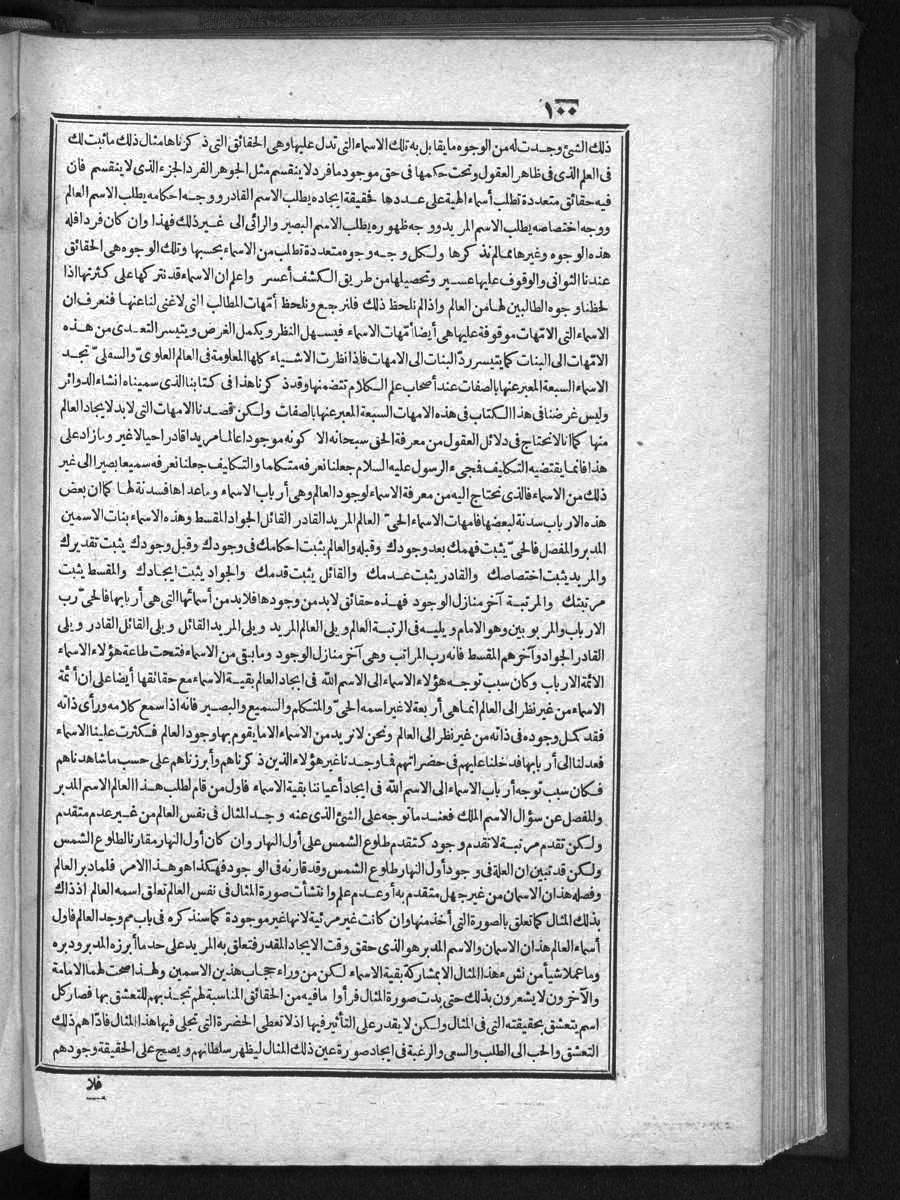 ١٠٠
ذلك الشئ وجدت له من الوجوه ما يقابل به تلك الاسماء التى تدل عليها وهى الحقائق التى ذكرناها مثال ذلك ما ثبت لك
فى العلم الذى فى ظاهر العقول وتحت حكمها فى حق موجود ما فرد لا ينقسم مثل الجوهر الفرد الجزء الذى لا ينقسم فان
فيه حقائق متعددة تطلب أسماء الهية على عددها فحقيقة ايجاده يطلب الاسم القادر ووجه احكامه يطلب الاسم العالم
ووجه اختصاصه يطلب الاسم المريد ووجه ظهوره يطلب الاسم البصير والرائى الى غير ذلك فهذا وان كان فردا فله
هذه الوجوه وغيرها مما لم نذكرها ولكل وجه وجوه متعددة تطلب من الاسماء بحسبها وتلك الوجوه هى الحقائق
عندنا الثوانى والوقوف عليها عسير وتحصيلها من طريق الكشف أعسر واعلم ان الاسماء قد نتركها على كثرتها اذا
لحظنا وجوه الطالبين لها من العالم واذا لم نلحظ ذلك فلنرجع ونلحظ أمّهات المطالب التى لا غنى لنا عنها فنعرف ان
الاسماء التى الامّهات موقوفة عليها هى أيضا أمّهات الاسماء فيسهل النظر ويكمل الغرض ويتيسر التعدى من هذه
الامّهات الى البنات كما يتيسر ردّ البنات الى الامهات فاذا نظرت الاشياء كلها المعلومة فى العالم العلوىّ والسفلىّ تجد
الاسماء السبعة المعبر عنها بالصفات عند أصحاب علم الكلام تتضمنها وقد ذكرنا هذا فى كتابنا الذى سميناه انشاء الدوائر
وليس غرضنا فى هذا الكتاب فى هذه الامهات السبعة المعبر عنها بالصفات ولكن قصدنا الامهات التى لا بد لايجاد العالم
منها كما انا لا نحتاج فى دلائل العقول من معرفة الحق سبحانه الا كونه موجودا عالما مريدا قادرا حيا لا غير وما زاد على
هذا فانما يقتضيه التكليف فمجىء الرسول عليه السلام جعلنا نعرفه متكلما والتكليف جعلنا نعرفه سميعا بصيرا الى غير
ذلك من الاسماء فالذى نحتاج اليه من معرفة الاسماء لوجود العالم وهى أرباب الاسماء وما عداها فسدنة لها كما ان بعض
هذه الارباب سدنة لبعضها فامهات الاسماء الحىّ العالم المريد القادر القائل الجواد المقسط وهذه الاسماء بنات الاسمين
المدبر والمفصل فالحىّ يثبت فهمك بعد وجودك وقبله والعالم يثبت احكامك فى وجودك وقبل وجودك يثبت تقديرك
والمريد يثبت اختصاصك والقادر يثبت عدمك والقائل يثبت قدمك والجواد يثبت ايجادك والمقسط يثبت
مرتبتك والمرتبة آخر منازل الوجود فهذه حقائق لا بد من وجودها فلا بد من أسمائها التى هى أربابها فالحىّ رب
الارباب والمربوبين وهو الامام ويليه فى الرتبة العالم ويلى العالم المريد ويلى المريد القائل ويلى القائل القادر ويلى
القادر الجواد وآخرهم المقسط فانه رب المراتب وهى آخر منازل الوجود وما بقى من الاسماء فتحت طاعة هؤلاء الاسماء
الائمة الارباب وكان سبب توجه هؤلاء الاسماء الى الاسم الله فى ايجاد العالم بقية الاسماء مع حقائقها أيضا على ان أئمة
الاسماء من غير نظر الى العالم انما هى أربعة لا غير اسمه الحىّ والمتكلم والسميع والبصير فانه اذا سمع كلامه ورأى ذاته
فقد كمل وجوده فى ذاته من غير نظر الى العالم ونحن لا نريد من الاسماء الا ما يقوم بها وجود العالم فكثرت علينا الاسماء
فعدلنا الى أربابها فدخلنا عليهم فى حضراتهم فما وجدنا غير هؤلاء الذين ذكرناهم وأبرزناهم على حسب ما شاهدناهم
فكان سبب توجه أرباب الاسماء الى الاسم الله فى ايجاد أعياننا بقية الاسماء فاول من قام لطلب هذا العالم الاسم المدبر
والمفصل عن سؤال الاسم الملك فعندما توجه على الشئ الذى عنه وجد المثال فى نفس العالم من غير عدم متقدم
ولكن تقدم مرتبة لا تقدم وجود كتقدم طلوع الشمس على أول النهار وان كان أول النهار مقارنا لطلوع الشمس
ولكن قد تبين ان العلة فى وجود أول النهار طلوع الشمس وقد قارنه فى الوجود فهكذا هو هذا الامر فلما دبر العالم
وفصله هذان الاسمان من غير جهل متقدم به أو عدم علم وانتشأت صورة المثال فى نفس العالم تعلق اسمه العالم اذ ذاك
بذلك المثال كما تعلق بالصورة التى أخذ منها وان كانت غير مرئية لانها غير موجودة كما سنذكره فى باب مم وجد العالم فاول
أسماء العالم هذان الاسمان والاسم المدبر هو الذى حقق وقت الايجاد المقدر فتعلق به المريد على حد ما أبرزه المدبر ودبره
وما عملا شيأ من نشء هذا المثال الا بمشاركة بقية الاسماء لكن من وراء حجاب هذين الاسمين ولهذا صحت لهما الامامة
والآخرون لا يشعرون بذلك حتى بدت صورة المثال فرأوا ما فيه من الحقائق المناسبة لهم تجذبهم للتعشق بها فصار كل
اسم يتعشق بحقيقته التى فى المثال ولكن لا يقدر على التأثير فيها اذ لا تعطى الحضرة التى تجلى فيها هذا المثال فادّاهم ذلك
التعشق والحب الى الطلب والسعى والرغبة فى ايجاد صورة عين ذلك المثال ليظهر سلطانهم ويصح على الحقيقة وجودهم
فلا